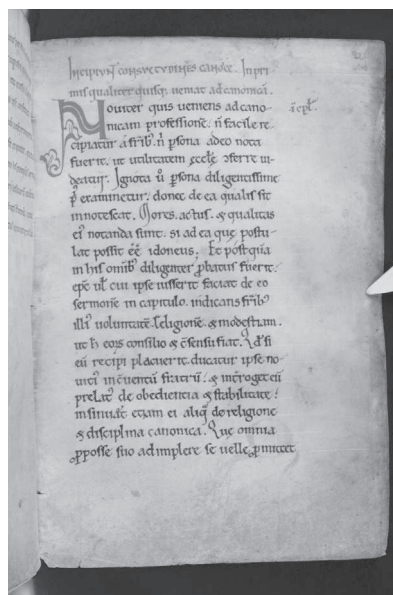 Incipiunt consuetudines canoꝝ. In pri
mis qualiter quisq; ueniat ad canonicā.
Nouiter quis ueniens ad cano-
nicam professionē. n̄ facile re-
cipiatur a frīb; n̄ psona adeo nota
fuerit. ut utilitatem ęcclę ꝯferre ui-
deatur. Ignota ū psona diligentissime
p̄ examinetur. donec de ea qualis sit
innotescat. Mores. actus. & qualitas
ei' notanda sunt. si ad ea que postu-
lat possit eē idoneus. Et postquā
in his omīb; diligenter pbatus fuerit.
ep̄c ul̄ cui ipse iusserit faciat de eo
sermonē in capitulo. indicans frīb;
illi' uoluntatē. religionē. & modestiam.
ut h̄ eoꝝ consilio & c̄sensu fiat. Qd̄ si
eū recipi placuerit. ducatur ipse no-
uici' in c̄uentū fratrū. & int̄roget eū
prelat' de obediencia & stabilitate.
insinuāt etiam ei aliq̄ de religione
& disciplina canonica. Que omnia
p posse suo adimplere se uelle pmittet